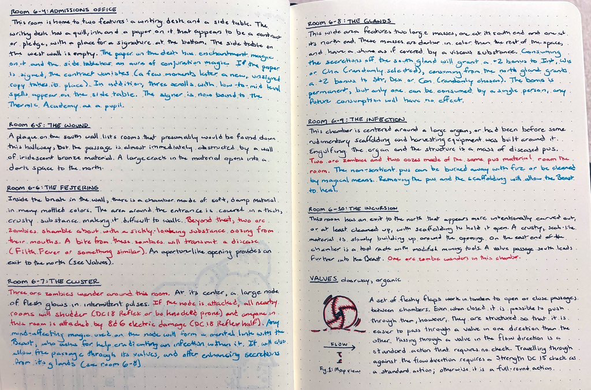 ROOM 6-4: ADMISSIONS OFFICE
This room is home to two features: a writing desk and a side table. The
writing desk has a quill, ink and a paper on it that appears to be a contract
or pledge, with a place for a signature at the bottom. The side table on
the west wall is empty. The paper on the desk has enchantment magic
on it and the side table has an aura of conjuration magic. If the paper
is signed, the contract vanishes (a few moments later a new, unsigned
copy takes its place). In addition, three scrolls with low-to-mid level
spells appear on the side table. The signer is now bound to the
Academy as a pupil.
ROOM 6-5: THE WOUND
A plaque on the south wall lists rooms that presumably would be found down
this hallway. But the passage is almost immediately obstructed by a wall
of iridescent bronze material. A large crack in the material opens into a
dark space to the north.
ROOM 6-6: THE FESTERING
Inside the break in the wall, there is a chamber made of soft, damp material
in many mottled colors. The area around the entrance is covered in a
crusty substance, making it difficult to walk. Beyond that, two are
zombies shamble about with a sickly-looking substance oozing from
their mouths. A bite from these zombies will transmit a disease
(Filth Fever or something similar). An aperture-like opening provides an
exit to the north (see Valves).
ROOM 6-7: THE CLUSTER
Three are zombies wander around this room. At its center, a large node
of flesh glows in intermittent pulses. If the node is attacked, all nearby
rooms will shudder (DC18 Reflex or be knocked prone) and anyone in
this room is attacked by 8d6 electric damage (DC18 Reflex half). Any
mind-affecting magic used on the node will form a mental link with the
Beast, who asks for help eradicating an infection within it. It will also
allow free passage through its valves, and offer enhancing secretions
from its glands (see room 6-8)
ROOM 6-8: THE GLANDS
This wide area features two large masses, one at its south end and one at
its north end. These masses are darker in color than the rest of the space,
and have a shine as if covered by a viscous substance. Consuming
the secretions off the south gland will grant a +2 bonus to Int, Wis
or Cha (randomly selected), consuming from the north gland grants
a +2 bonus to Str, Dex or Con (randomly chosen). The bonus is
permanent, but only one can be consumed by a single person, any
future consumption will have no effect.
ROOM 6-9: THE INFECTION
This chamber is centered around a large organ, or had been before some
rudimentary scaffolding and harvesting equipment was built around it.
Engulfing the organ and the structure is a mass of diseased pus.
Two are zombies and two oozes made of the same pus material roam the
room. The non-sentient pus can be burned away with fire or be cleaned
by magical means. Removing the pus and the scaffolding will allow the Beast
to heal.
ROOM 6-10: THE INCURSION
This room has an exit to the north that appears more intentionally carved out,
or at least cleaned up, with scaffolding to hold it open. A crusty, scab-like
material is slowly building up around the opening. On the east end of the
chamber is a tool rack with modified mining tools. A valve passage south leads
further into the Beast. One are zombie wanders in this chamber.
VALVES: doorway, organic
A set of fleshy flaps work in tandem to open or close passages
between chambers. Even when closed it is possible to push
through them, however, they are structured so that it is
easier to pass through a valve in one direction than the
other. Passing through a valve in the flow direction is a
standard action that requires no check. Travelling through
against the flow direction requires a Strength DC 15 check as
a standard action; otherwise it is a full-round action.
FLOW →
Fig. 1: Top view